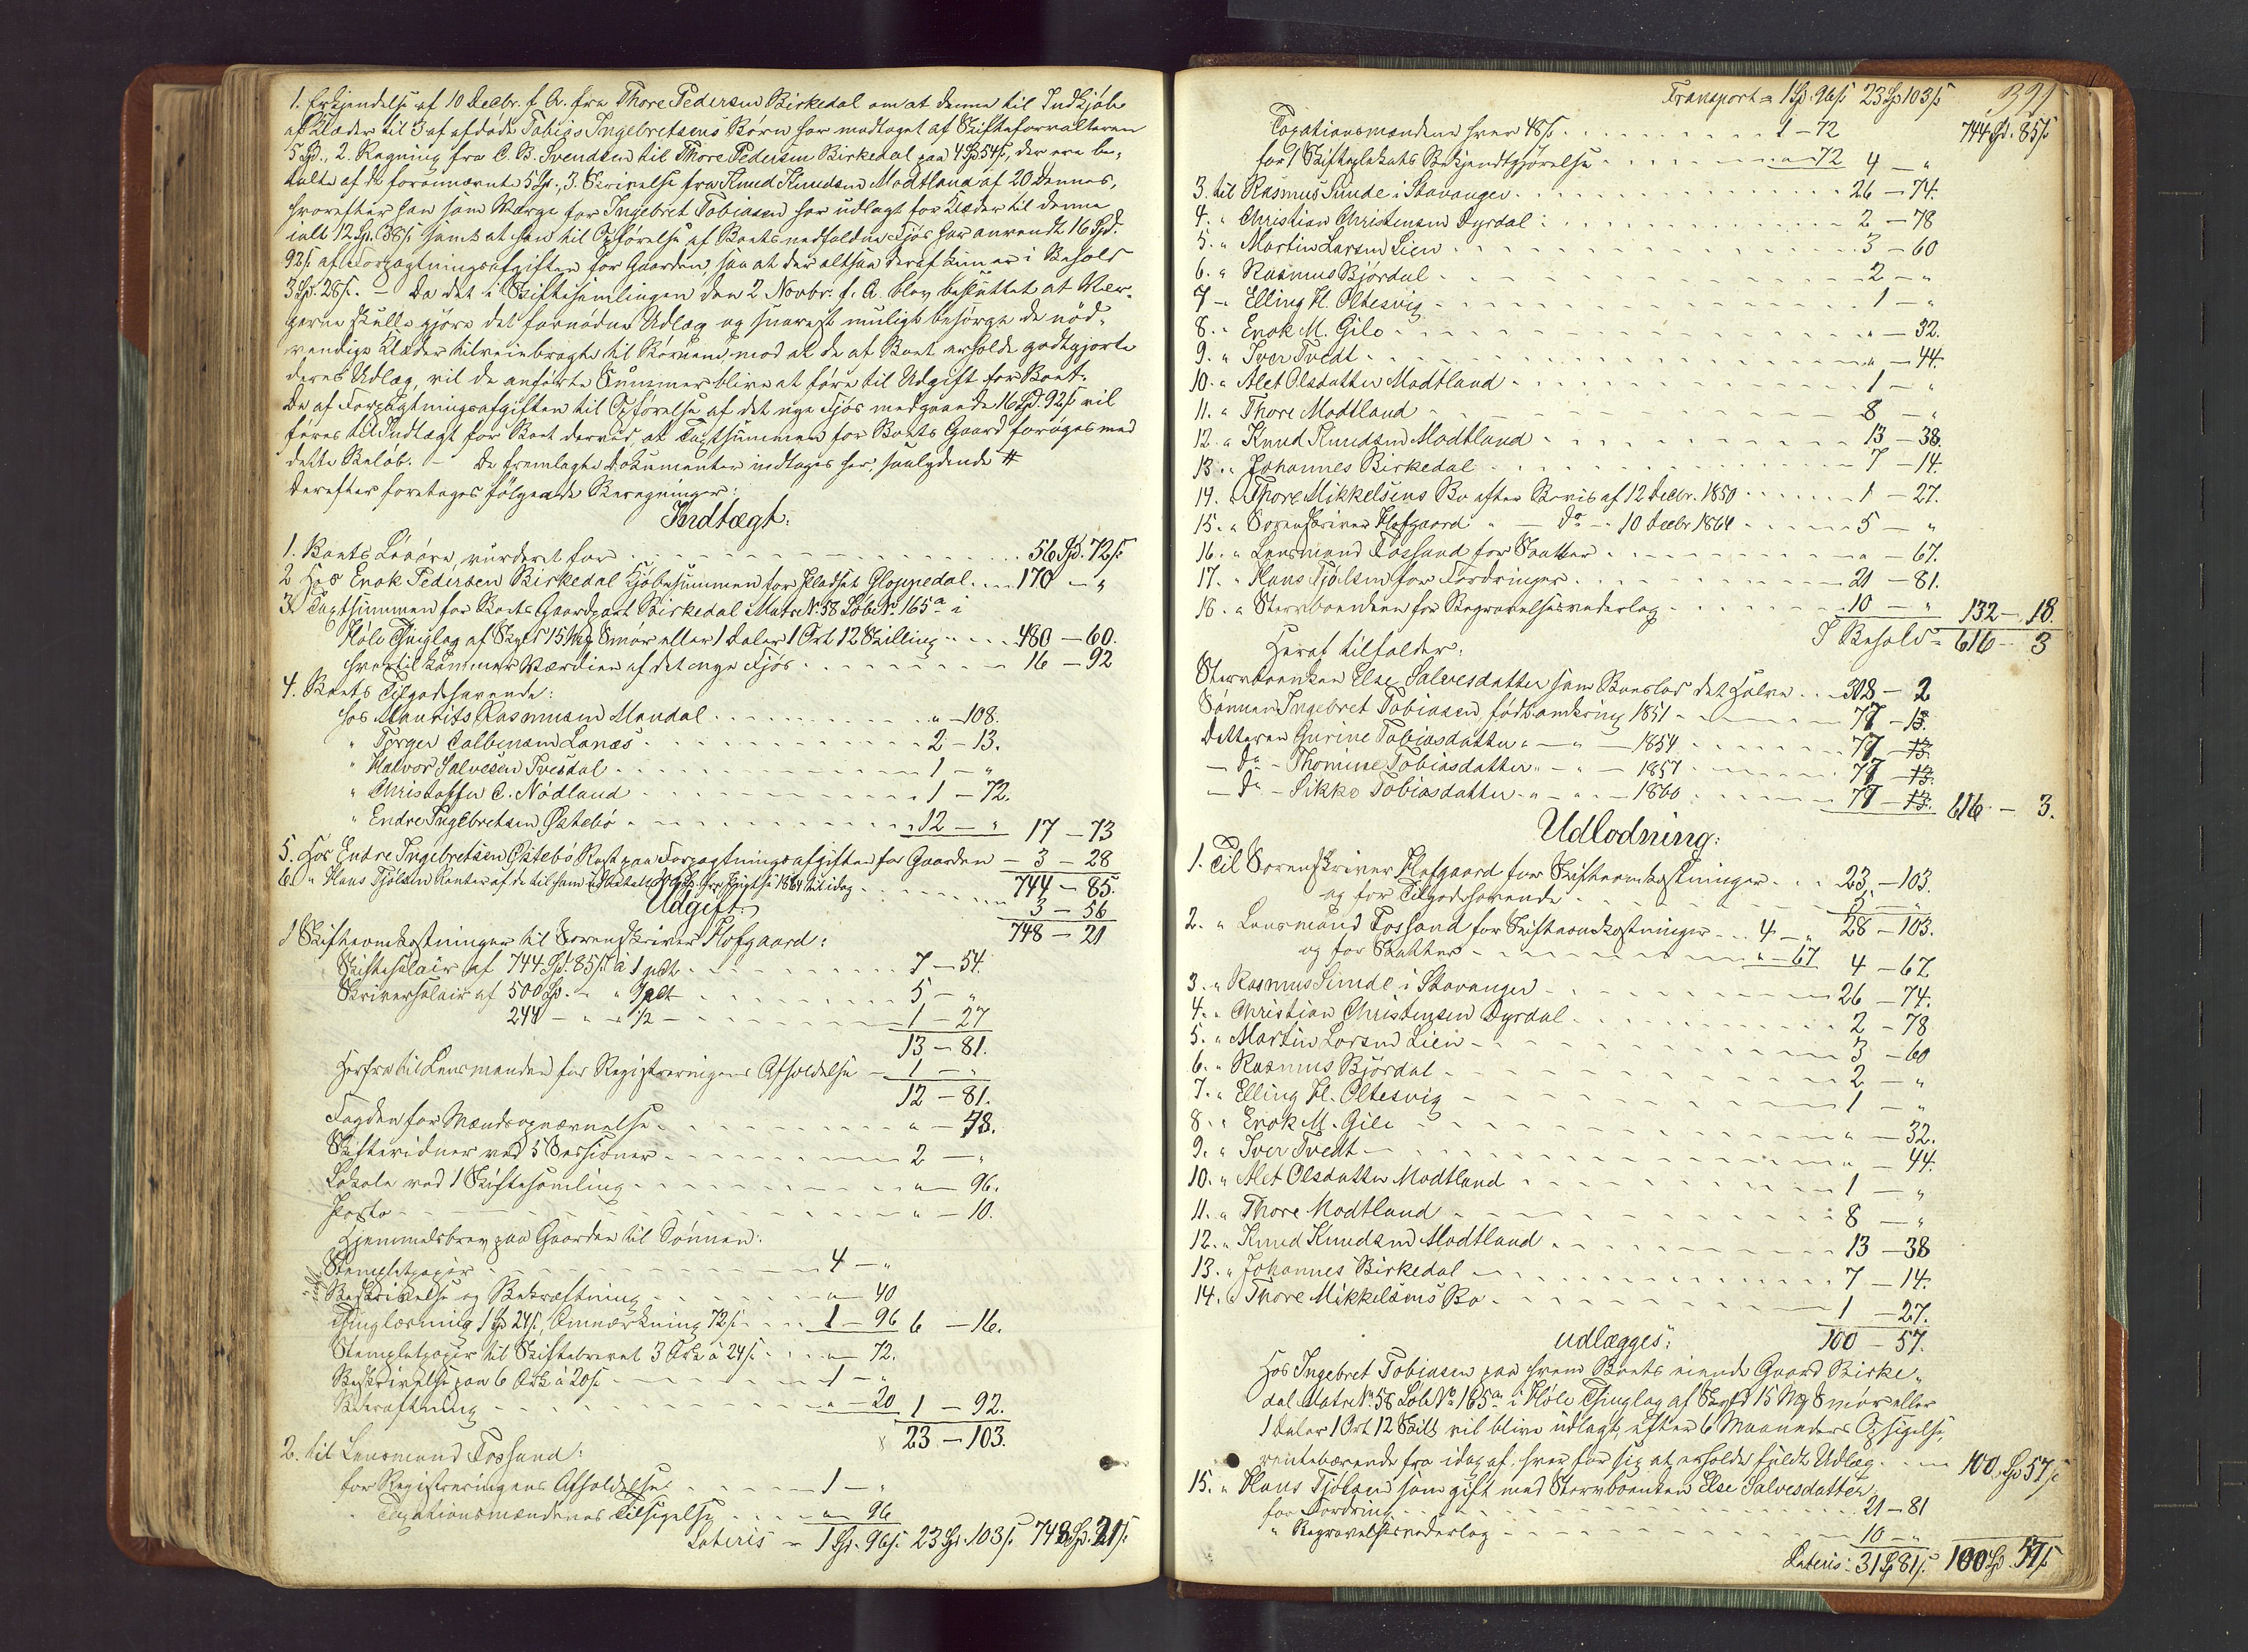 1. Erkjendelse af 10 Decbr. f. A. fra Thore Pedersen Birkedal om at denne til Indkjøb
af Klæder til 3 af afdøde Tobias Ingebretsens Børn har modtaget af Skifteforvalteren
5 Spd., 2. Regning fra C. B. Svendsen til Thore Pedersen Birkedal paa 4 Spd 54 s, der ere be-
talte af de forannævnte 5 Sp., 3. Skrivelse fra Knud Knudsen Modtland af 20 dennes,
hvorefter han som Værge for Ingebret Tobiasen har udlagt for Klæder til denne
ialt 12 Sp. 38 s samt at han til Opførelse af Boets nedfaldne Fjøs har anvendt 16 Spd.
92 s af Forpagtningsafgiften for Gaarden, saa at der altsaa deraf kun er i Behold
3 Sp. 28 s. – Da det i Skiftesamlingen den 2 Novbr. f. A. blev besluttet at Vær-
gerne skulle gjøre det fornødne Udlæg og snarest muligt besørge de nød-
vendige Klæder tilveiebragte til Børnene, mod at de af Boet erholde godtgjorte
deres Udlæg, vil de anførte Summer blive at føre til Udgift for Boet.
De af Forpagtningsafgiften til Opførelse af det nye Fjøs medgaaede 16 Spd. 92 s vil
føres til Indtægt for Boet derved, at Taxtsummen for Boets Gaard forøges med
dette Beløb. – De fremlagte Dokumenter indtages her, saalydende #
Derefter foretages følgende Beregninger:
Indtægt:
1. Boets Løsøre, vurderet for 56 Spd. 72 s
2 Hos Enok Pedersen Birkedal Kjøbesummen for Pladset Gloppedal 170 – "
3 Taxtsummen for Boets Gaardpart Birkedal Matr. No. 58 Løbe No. 165 a i
Høle Thinglag af Skyld 15 Mkr Smør eller 1 Daler 1 Ort 12 Skilling 480 – 60.
hvortil kommer Værdien af det nye Fjøs 16 – 92
4. Boets Tilgodehavende:
hos Maurits Rasmusen Maudal " – 108.
" Torger Salvesen Lanæs 2 – 13.
" Halvor Salvesen Tvesdal 1 – "
" Christoffer C. Nødland 1 – 72.
" Endre Ingebretsen Østebø 12 – " 17 – 73
5. Hos Endre Ingebretsen Østebø Rest paa Forpagtningsafgiften for Gaarden – 3 – 28
744 – 85.
6. " Hans Tjølsen Renter af de til ham udbetalte 1864 til idag 3 – 56
748 – 21
Udgift:
1 Skifteomkostninger til Sorenskriver Hofgaard:
Skiftesalair af 744 Spd. 85 s à 1 pCt 7 – 54.
Skriversalair af 500 Sp. – " 1 pCt 5 – "
244 – " – " 1/2 – 1 – 27
13 – 81.
Herfra til Lensmanden for Registreringens Afholdelse 1 – "
12 – 81.
Fogden for Mændsopnævnelse " – 48.
Skiftevidner ved 5 Sessioner 2 – "
Lokale ved 1 Skiftesamling " – 96.
Porto " – 10.
Hjemmelsbrev paa Gaarden til Sønnen:
Stemplet papir 4 – "
Beskrivelse og Bekræftning " – 40
Thinglæsning 1 Sp 24 s, Anmærkning 72 s 1 – 96 6 – 16.
Stempletpapir til Skiftebrevet 3 Ark à 24 s " – 72.
Beskrivelse paa 6 Ark à 20 s 1 – "
Bekræftning " – 20 1 – 92.
23 – 103.
2. til Lensmand Fossand:
for Registreringens Afholdelse 1 – "
" Taxationsmændenes Tilsigelse " – 96
Lateris 1 Sp. 96 s. 23 Sp. 103 s. 748 Sp. 21 s.
Transport 1 Sp. 96 s. 23 Sp 103 s 391
744 Sp. 85 s
Taxationsmændene hver 48 s 1 – 72
for 1 Skifteplakats Bekjendtgjørelse " – 72 4 – "
3. til Rasmus Sunde i Stavanger 26 – 74.
4. " Christian Christensen Dyrdal 2 – 78
5. " Martin Larsen Lien 3 – 60
6. " Rasmus Bjørdal 2 – "
7 – Elling H. Oltesvig 1 – "
8. " Enok M. Gilo " – 32.
9. " Iver Tvedt " – 44.
10. " Alet Olsdatter Modtland 1 – "
11. " Thore Modtland 8 – "
12. " Knud Knudsen Modtland 13 – 38.
13. " Johannes Birkedal 7 – 14.
14. " Thore Mikkelsens Bo efter Bevis af 12 Decbr. 1850 1 – 27.
15. " Sorenskriver Hofgaard " – do – 10 Decbr 1864 5 – "
16. " Lensmand Fossand for Skatter " – 67.
17. " Hans Tjølsen for Fordringer 21 – 81.
18. " Stervboenken for Begravelsesvederlag 10 – " 132 – 18.
I Behold 616 – 3
Heraf tilfalder:
Stervboenken Else Salvesdatter som Boeslod det Halve 308 – 2
Sønnen Ingebret Tobiasen, født omkring 1851 77 – 13.
Datteren Gurine Tobiasdatter " – " – 1854 77 – 13.
– do – Thomine Tobiasdatter " – " – 1857 77 – 13.
– do – Sikke Tobiasdatter " – " – 1860 77 – 13. 616 – 3.
Udlodning:
1. Til Sorenskriver Hofgaard for Skifteomkostninger 23 – 103.
og for Tilgodehavende 5 – "
28 – 103.
2. " Lensmand Fossand for Skifteomkostninger 4 – "
og for Skatter " – 67 4 – 67
3. " Rasmus Sunde i Stavanger 26 – 74.
4. " Christian Christensen Dyrdal 2 – 78
5. " Martin Larsen Lien 3 – 60
6. " Rasmus Bjørdal 2 – "
7. " Elling H. Oltesvig 1 – "
8. " Enok M. Gilo " – 32.
9. " Iver Tvedt " – 44.
10. " Alet Olsdatter Modtland 1 – "
11. " Thore Modtland 8 – "
12. " Knud Knudsen Modtland 13 – 38
13. " Johannes Birkedal 7 – 14.
14. " Thore Mikkelsens Bo 1 – 27.
udlægges: 100 – 57.
Hos Ingebret Tobiasen paa hvem Boets eiende Gaard Birke-
dal Matr. No. 58 Løbe No. 165 a i Høle Thinglag af Skyld 15 Mkr Smør eller
1 Daler 1 Ort 12 Skill vil blive udlagt, efter 6 Maaneders Opsigelse,
rentebærende fra idag af, hver for sig at erholde fuldt Udlæg 100 Sp 57 s
15. " Hans Tjølsen som gift med Stervboenken Else Salvesdatter
for Fordring 21 – 81
" Begravelsesvederlag 10 – "
Lateris: 31 Sp 81 s. 100 Sp. 57 s